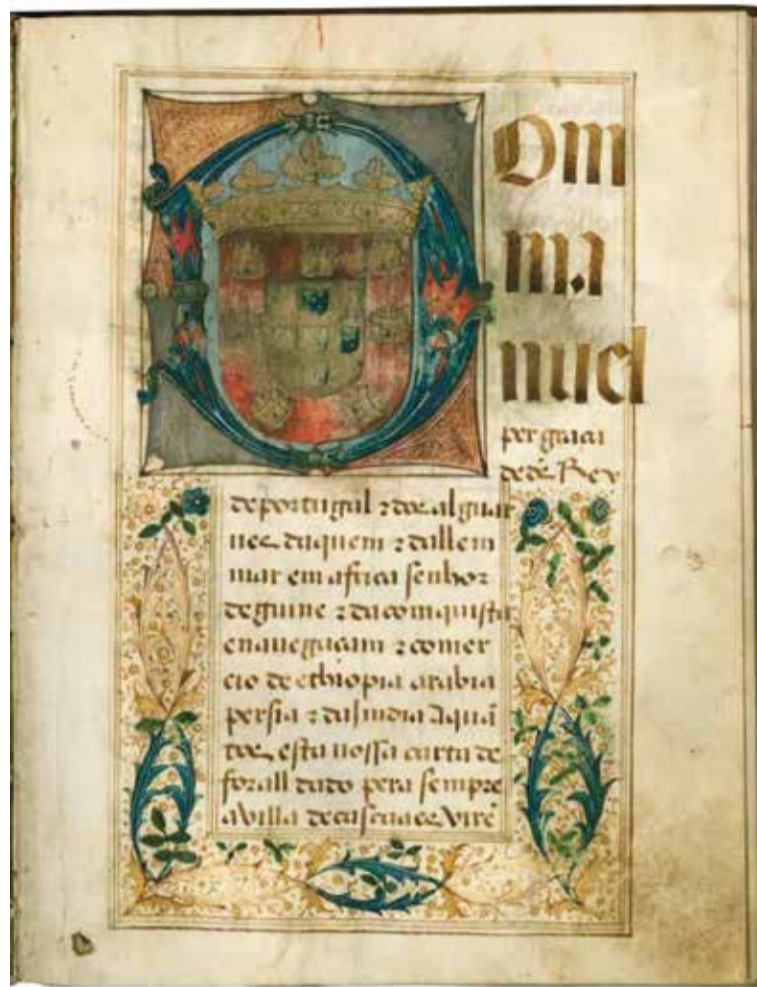 Dom
ma
nuel
per graça
de ds Rey
de portugal & dos alguar
ues daquem & dallem
mar em africa senhor
de guine & da comquista
e nauegaçam & comer
cio de ethiopia arabia
persia & da Jndia A quā
tos esta nossa carta de
forall dado pera sempre
a villa de cascaes virē